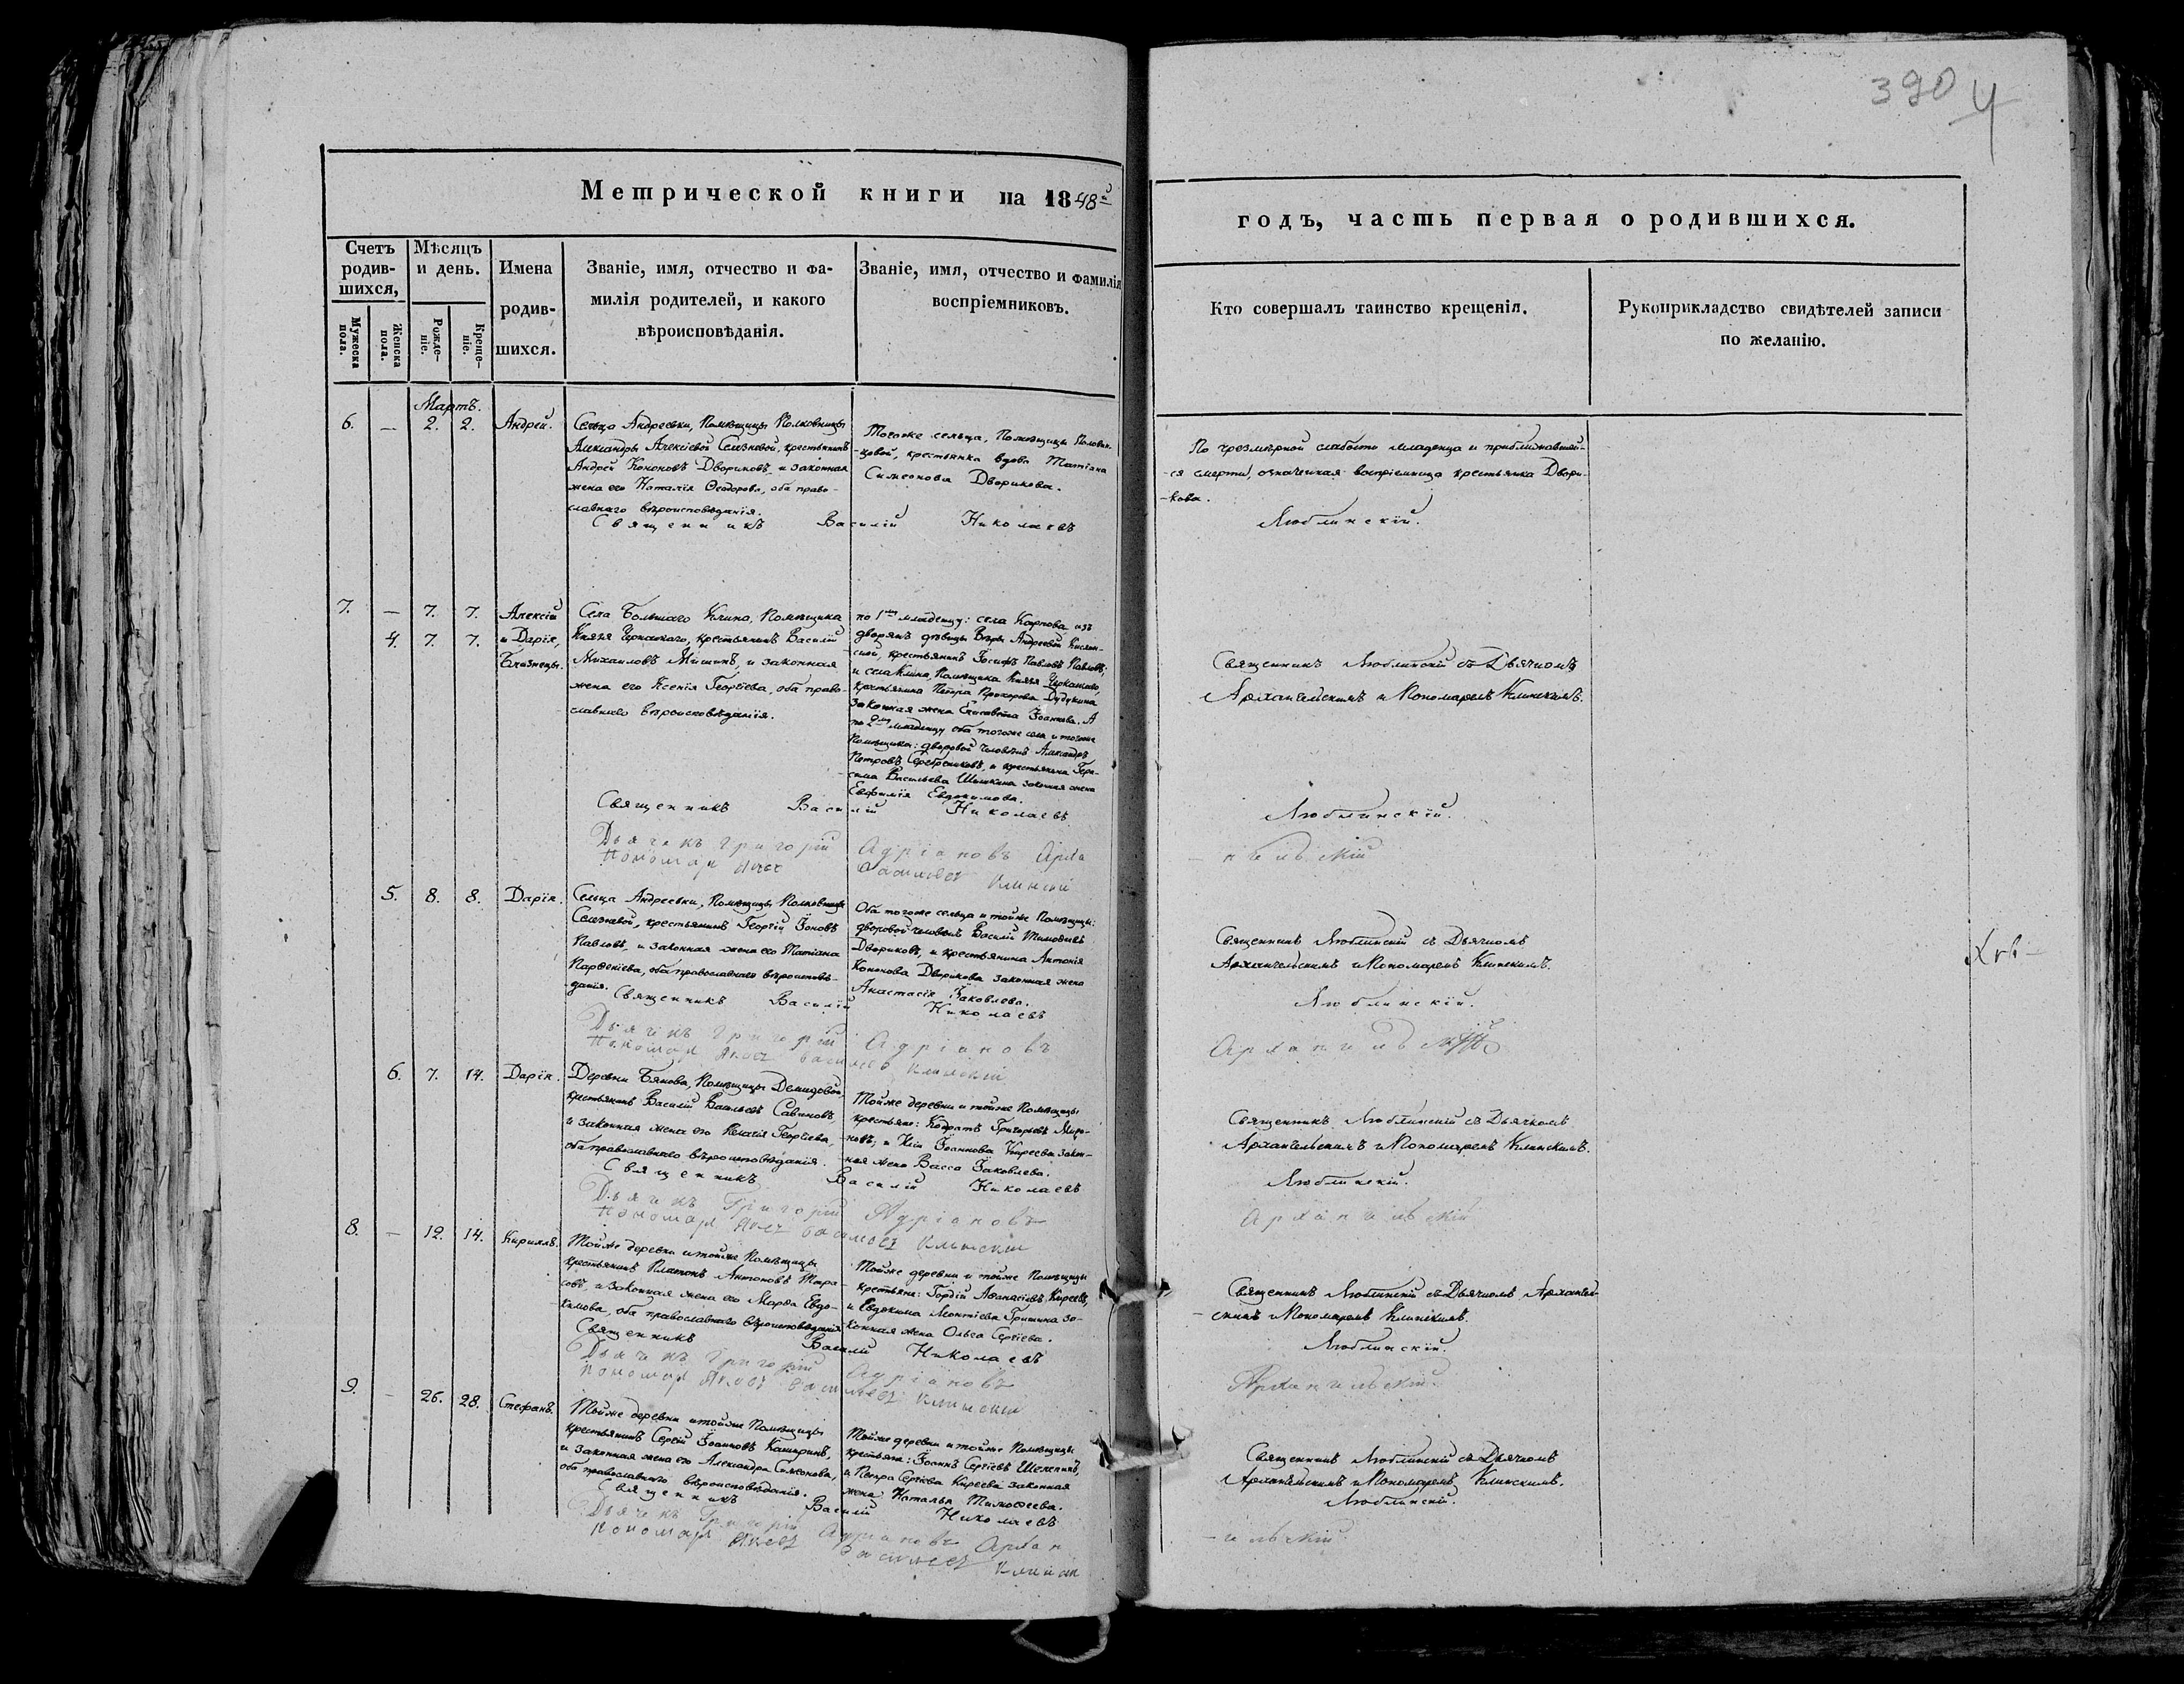 390 4
Метрической книги на 1848й
годъ, часть первая о родившихся.
Счетъ родив-
шихся,
Мужеска пола.
Женска пола.
Мѣсяцъ и день.
Рожде-
ніе.
Креще-
ніе.
Имена
родив-
шихся.
Званіе, имя, отчество и фа-
милія родителей, и какого
вѣроисповѣданія.
Званіе, имя, отчество и фамилія
воспріемниковъ.
Кто совершалъ таинство крещенія.
Рукоприкладство свидѣтелей записи
по желанію.
Мартъ.
6. — 2. 2. Андрей.
Сельца Андреевки, Помѣщицы Полковницы
Александры Алексіевой Селезневой, крестьянинъ
Андрей Кононовъ Двориковъ и законная
жена его Наталія Ѳеодорова, оба право-
славнаго вѣроисповѣданія.
Тогоже сельца, Помѣщицы
крестьянка вдова Татіана
Симеонова Дворикова.
По чрезмѣрной слабости младенца и приближавшей-
-ся смерти, означенная воспріемница крестьянка Двори-
-кова.
Священникъ Василій Николаевъ Люблинскій.
7. — 7. 7. Алексій
4. 7. 7. и Дарія,
Близнецы.
Села Большаго Клина, Помѣщика
Князя Черкаскаго, крестьянинъ Василій
Михаиловъ Мишинъ, и законная
жена его Ксенія Георгіева, оба право-
славнаго вѣроисповѣданія.
по 1му младенцу: села Карпова изъ
дворянъ дѣвицы Вѣры Андреевой
крестьянинъ Іосифъ Павловъ Павловъ;
и села Клина, Помѣщика Князя Черкаскаго,
крестьянина Петра Прохорова Дудукина
законная жена Елисавета Іоаннова. А
по 2му младенцу оба тогоже села и тогоже
Помѣщика: дворовой человѣкъ Александръ
Петровъ Серебрениковъ, и крестьянина Гера-
сима Васильева Шишкина законная жена
Евфимія Евдокимова.
Священникъ Люблинскій съ Дьячкомъ
Архангельскимъ и Пономаремъ Клинскимъ.
Священникъ Василій Николаевъ Люблинскій.
Дьячекъ Григорій Адріановъ Арха
Пономарь Василіевъ Клинскій
5. 8. 8. Дарія.
Сельца Андреевки, Помѣщицы Полковницы
Селезневой, крестьянинъ Георгій Іоновъ
Павловъ, и законная жена его Татіана
Парѳеніева, оба православнаго вѣроисповѣ-
данія.
Оба тогоже сельца и тойже Помѣщицы:
дворовой человѣкъ Василій Тимоѳеевъ
Двориковъ, и крестьянина Антонія
Кононова Дворикова законная жена
Анастасія Іаковлева.
Священникъ Люблинскій съ Дьячкомъ
Архангельскимъ и Пономаремъ Клинскимъ.
Священникъ Василій Николаевъ Люблинскій.
Дьячекъ Григорій Адріановъ
Пономарь Клинскій
6. 7. 14. Дарія.
Деревни Бякова, Помѣщицы Демидовой,
крестьянинъ Василій Васильевъ Савиновъ,
и законная жена его Пелагія Георгіева,
оба православнаго вѣроисповѣданія.
Тойже деревни и тойже Помѣщицы
крестьяне: Кодратъ Григорьевъ Миро-
новъ; и Іоаннова Киреева закон-
ная жена Васса Іаковлева.
Священникъ Люблинскій съ Дьячкомъ
Архангельскимъ и Пономаремъ Клинскимъ.
Священникъ Василій Николаевъ Люблинскій.
Дьячекъ Григорій Адріановъ Архангельскій
Пономарь Клинскій
8. — 12. 14. Кириллъ.
Тойже деревни и тойже Помѣщицы
крестьянинъ Платонъ Антоновъ Тара-
совъ, и законная жена его Марѳа Евдо-
кимова, оба православнаго вѣроисповѣданія.
Тойже деревни и тойже Помѣщицы
крестьяне: Гордій Аѳанасіевъ Киреевъ,
и Евдокима Леонтіева Гришина за-
конная жена Ольга Сергіева.
Священникъ Люблинскій съ Дьячкомъ Архангель-
-скимъ и Пономаремъ Клинскимъ.
Священникъ Василій Николаевъ Люблинскій.
Дьячекъ Григорій Адріановъ Архангельскій.
Пономарь Клинскій
9. — 26. 28. Стефанъ.
Тойже деревни и тойже Помѣщицы
крестьянинъ Сергій Іоанновъ Каширинъ,
и законная жена его Александра Симеонова,
оба православнаго вѣроисповѣданія.
Тойже деревни и тойже Помѣщицы
крестьяне: Іоаннъ Сергіевъ
и Петра Сергіева Киреева законная
жена Наталья Тимоѳеева.
Священникъ Люблинскій съ Дьячкомъ
Архангельскимъ и Пономаремъ Клинскимъ.
Священникъ Василій Николаевъ Люблинскій.
Дьячекъ Григорій Адріановъ Архан
-гельскій
Пономарь Василіевъ